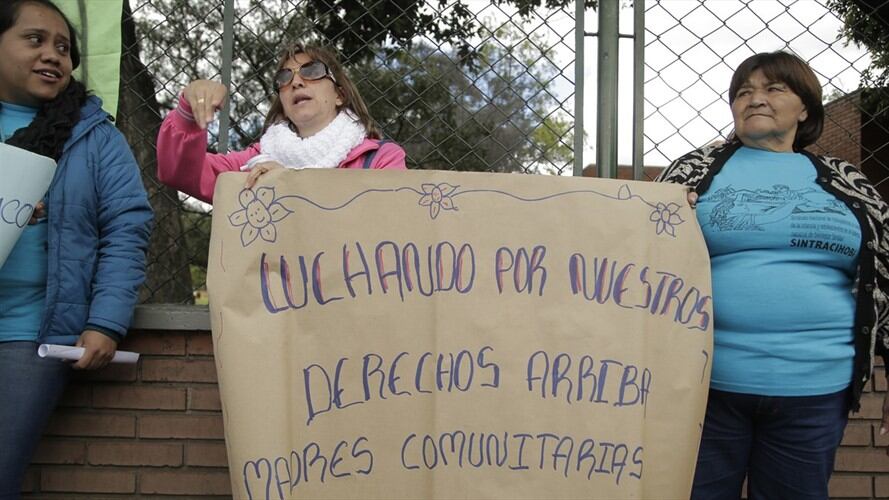 LUCHANDO POR NUESTROS
DERECHOS ARRIBA
MADRES COMUNITARIAS
SINTRACIHOBI